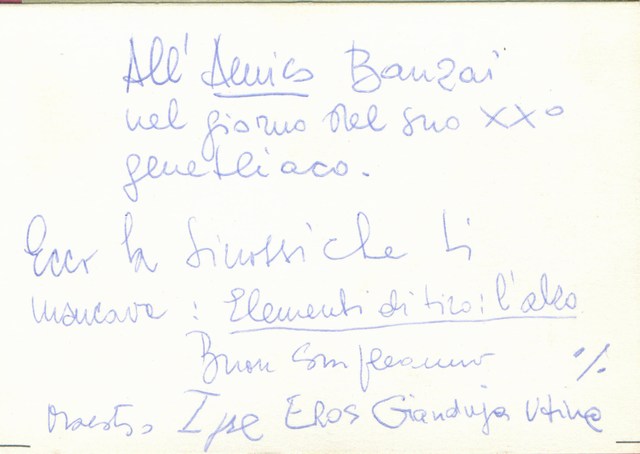 All' Amico Banzai
nel giorno del suo XX°
genetliaco.
Ecco la sinossi che ti
mancava : Elementi di tiro: l'alzo
Buon compleanno %
Ipse EROS Gianduja